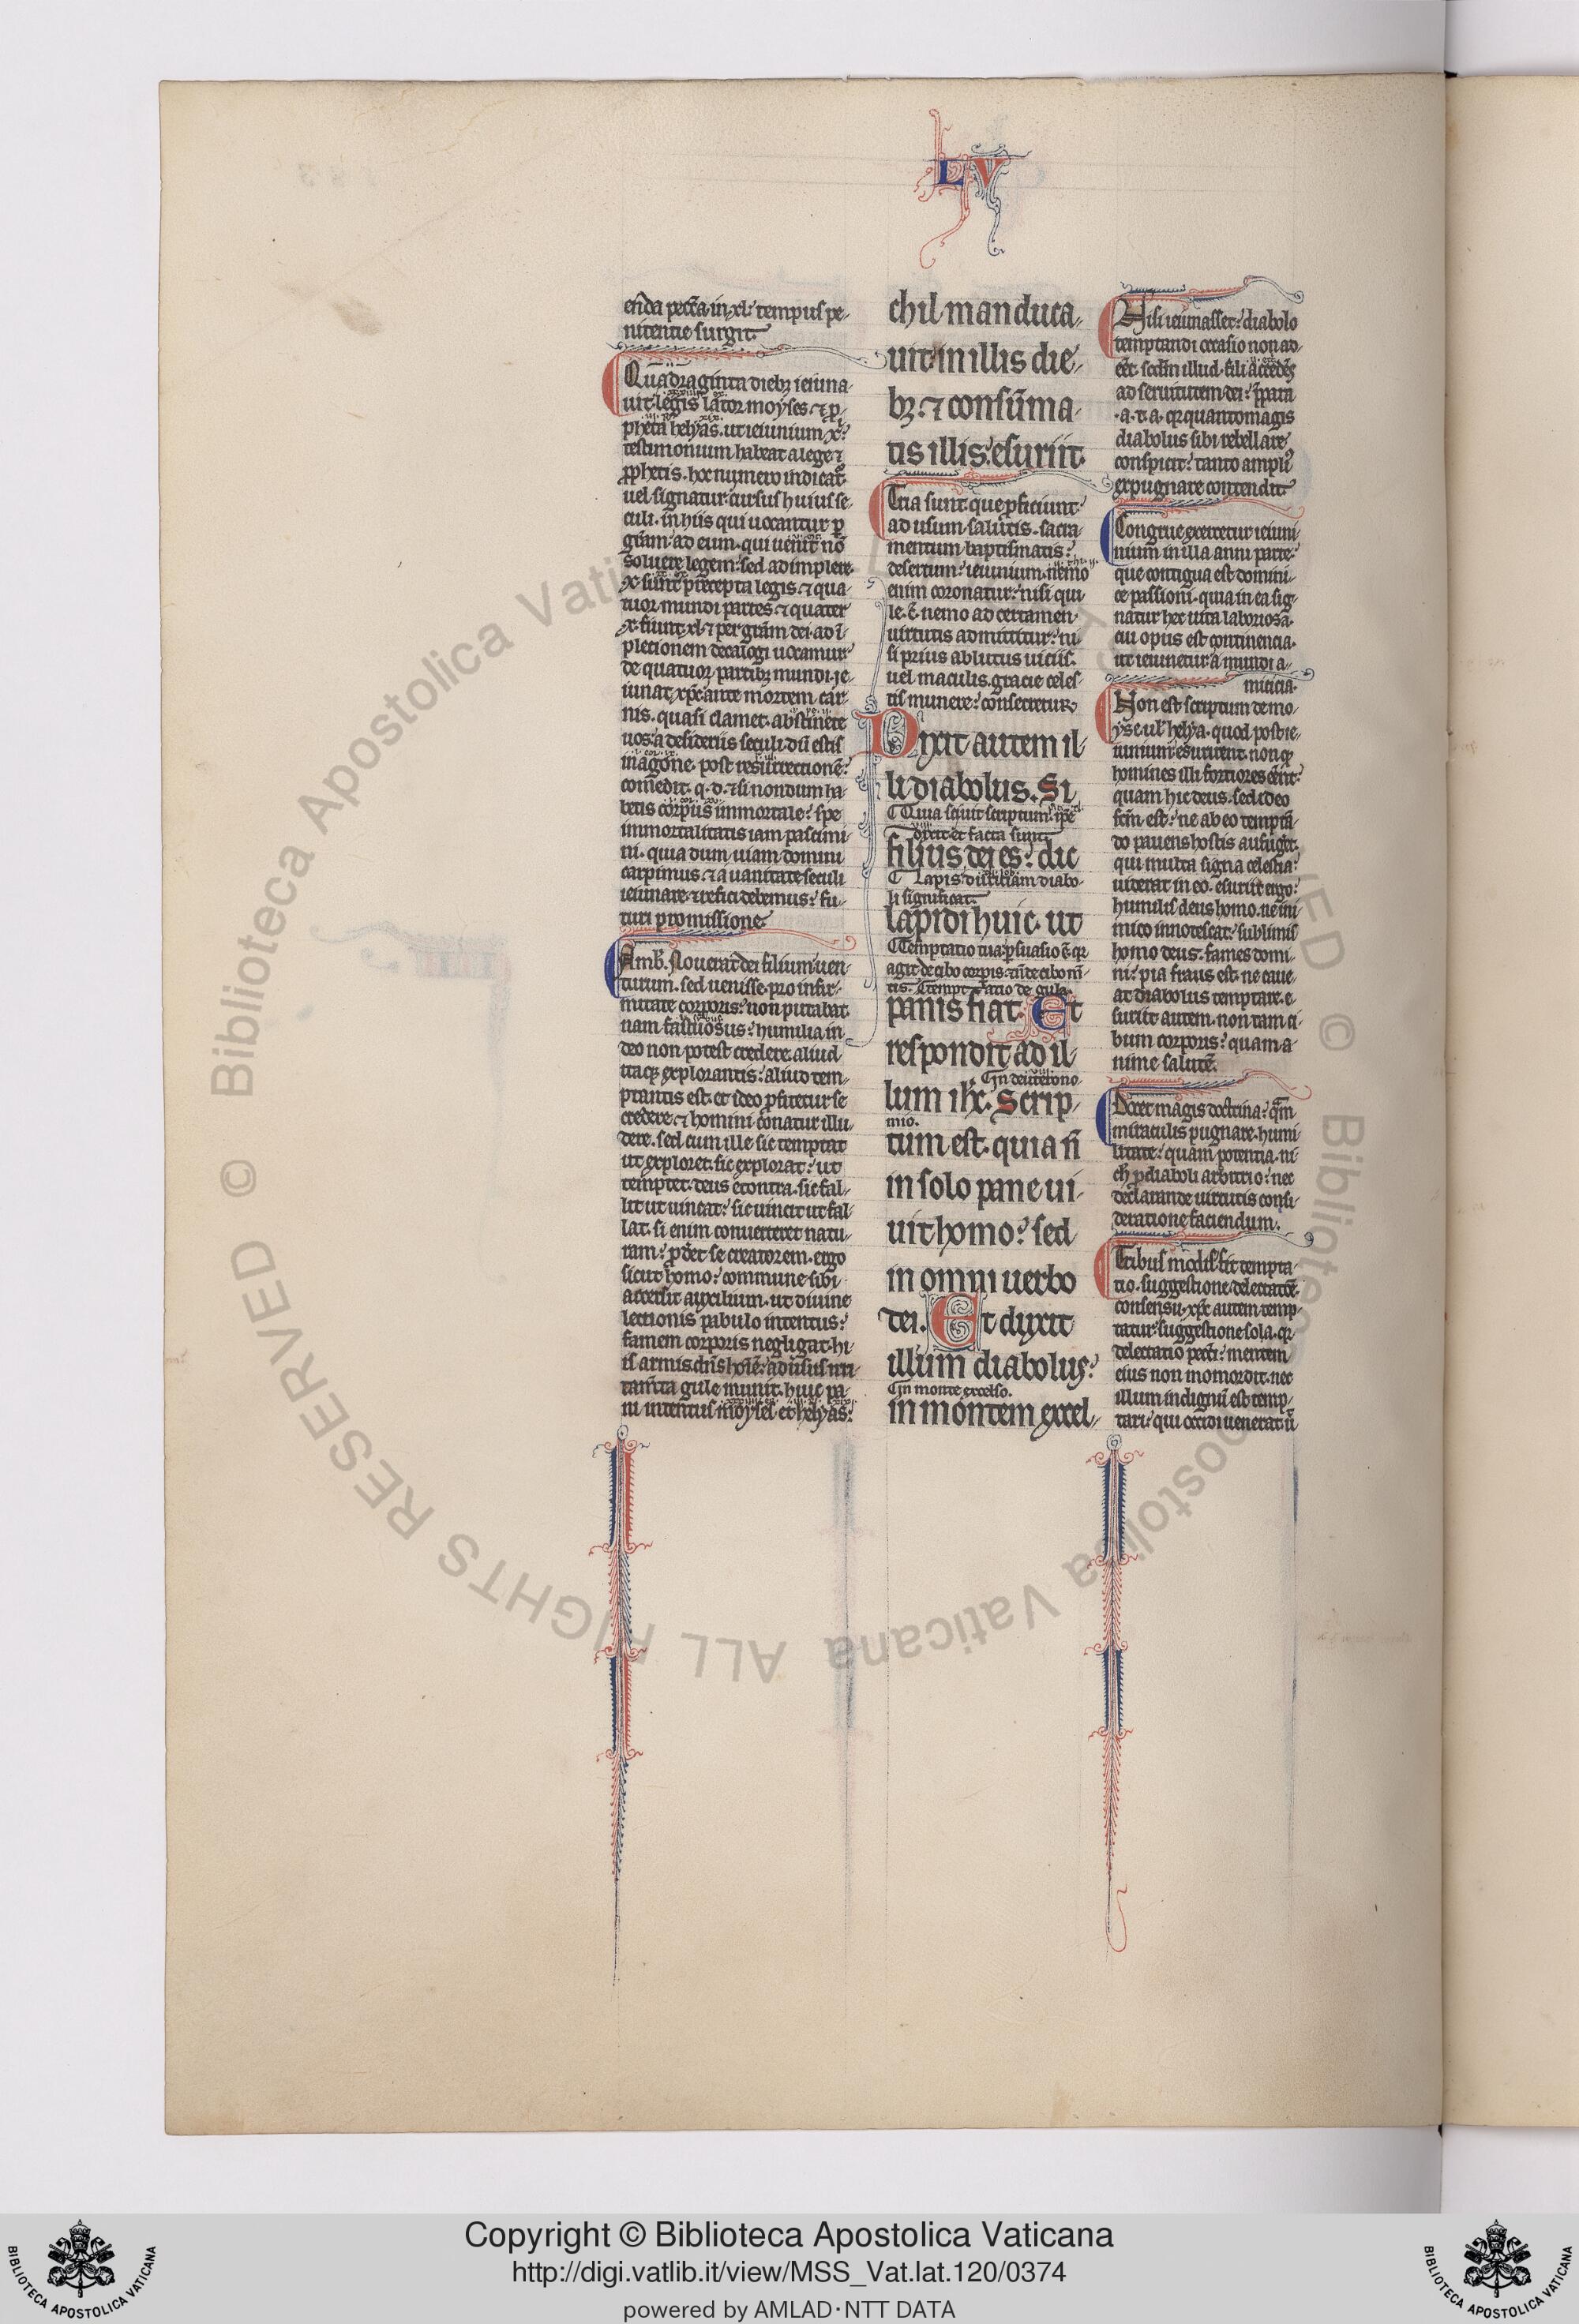 LV
enda peccata in xl. tempus pe-
nitentie surgit.
Quadraginta diebz ieiuna-
uit legis lator moyses. ⁊ pro-
pheta helyas. ut ieiunium x̄
testimonium habeat a lege ⁊
prophetis. hoc numero indicatur
uel signatur cursus huius se-
culi. in hiis qui uocantur per
gratiam ad eum. qui uenit nō
soluere legem: sed adimplere.
x. sunt precepta legis. ⁊ qua-
tuor mundi partes. ⁊ quater
x. fiunt xl. ⁊ per gratiam dei. ad ī-
pletionem decalogi uocamur
de quatuor partibz mundi. ie-
iunat xpc̄ ante mortem car-
nis. quasi clamet. abstinete
uos a desideriis seculi. dū estis
post resurrectionē:
comedit. q. d. ⁊ si nondum ha-
betis corpus immortale: spe
immortalitatis iam pascimi-
ni. quia dum uiam domini
carpimus. ⁊ a uanitate seculi
ieiunare. ⁊ refici debemus: fu-
turi promissione.
Amb. Nouerat dei filium uen-
turum. sed uenisse pro infir-
mitate corporis: non putabat.
nam fastuosus: humilia in
deo non potest credere. aliud
itaqz explorantis: aliud tem-
ptantis est. et ideo profitetur se
credere. ⁊ homini conatur illu-
dere. sed cum ille sic temptat
ut exploret. sic explorat: ut
temptet. deus econtra. sic fal-
lit ut uincat: sic uincit ut fal-
lat. si enim conuerteret natu-
ram: proderet se creatorem. ergo
sicut homo: commune sibi
accersit auxilium. ut diuine
lectionis pabulo intentus:
famem corporis negligat. hi-
is armis
gule munit. huic pa-
ni intentus moyses et helyas:
chil manduca-
uit in illis die-
bz. ⁊ consūma-
tis illis: esuriit.
Tria sunt que proficiunt
ad usum salutis. sacra-
mentum baptismatis:
desertum: ieiunium. nemo
enim coronatur: nisi qui
le. c̄. nemo ad certamen
uirtutis admittitur: ni-
si prius ablutus uiciis.
uel maculis. gracie celes-
tis munere: consecretur.
Dixit autem il-
li diabolus. Si
Quia sciuit scriptum. ipse
dixit et facta sunt.
filius dei es: dic
Lapis duriciam diabo-
li significat.
lapidi huic. ut
Temptatio tua persuasio ē. qr
agit de cibo corporis. nō de cibo mē-
tis. temptatio de gula.
panis fiat. Et
respondit ad il-
In deuterono-
lum ihc̄. Scrip-
mio.
tum est. quia n̄
in solo pane ui-
uit homo: sed
in omni uerbo
dei. Et duxit
illum diabolus:
In monte excelso.
in montem excel-
Nisi ieiunasset: diabolo
temptandi occasio non ad-
eēt. scdm illud. fili accedēs
ad seruitutem dei: prepara
.a. t. a. qr quanto magis
diabolus sibi rebellare
conspicit: tanto ampli9
expugnare contendit.
Congrue exercetur ieiuni-
nium in illa anni parte:
que contigua est domini-
ce passioni. quia in ea sig-
natur hec uita laboriosa.
cui opus est continencia.
ut ieiunetur a mundi a-
micicia.
Non est scriptum de mo-
yse ul helya. quod post ie-
iunium esurirent. non qz
homines illi fortiores eēnt:
quam hic deus. sed ideo
fcm est: ne ab eo temptā-
do pauens hostis aufugeret.
qui multa signa celestia:
uiderat in eo. esuriit ergo:
humilis deus homo. ne ini-
mico innotescat: sublimis
homo deus. fames domi-
ni: pia fraus est. ne caue-
at diabolus temptare. e-
suriit autem. non tam ci-
bum corporis: quam a-
nime salutē.
Docet magis doctrina: qm̄
miraculis pugnare. humi-
litate: quam potentia. ni-
ch pro diaboli arbitrio: nec
declarande uirtutis consi-
deratione faciendum.
Tribus modis fit tempta-
tio. suggestione. delectatōe.
consensu. xpc̄ autem temp-
tatur: suggestione sola. qr
delectatio peccti: mentem
eius non momordit. nec
illum indignū est temp-
tari: qui occidi uenerat. ū
Copyright © Biblioteca Apostolica Vaticana
http://digi.vatlib.it/view/MSS_Vat.lat.120/0374
powered by AMLAD·NTT DATA
BIBLIOTECA APOSTOLICA VATICANA
BIBLIOTECA APOSTOLICA VATICANA